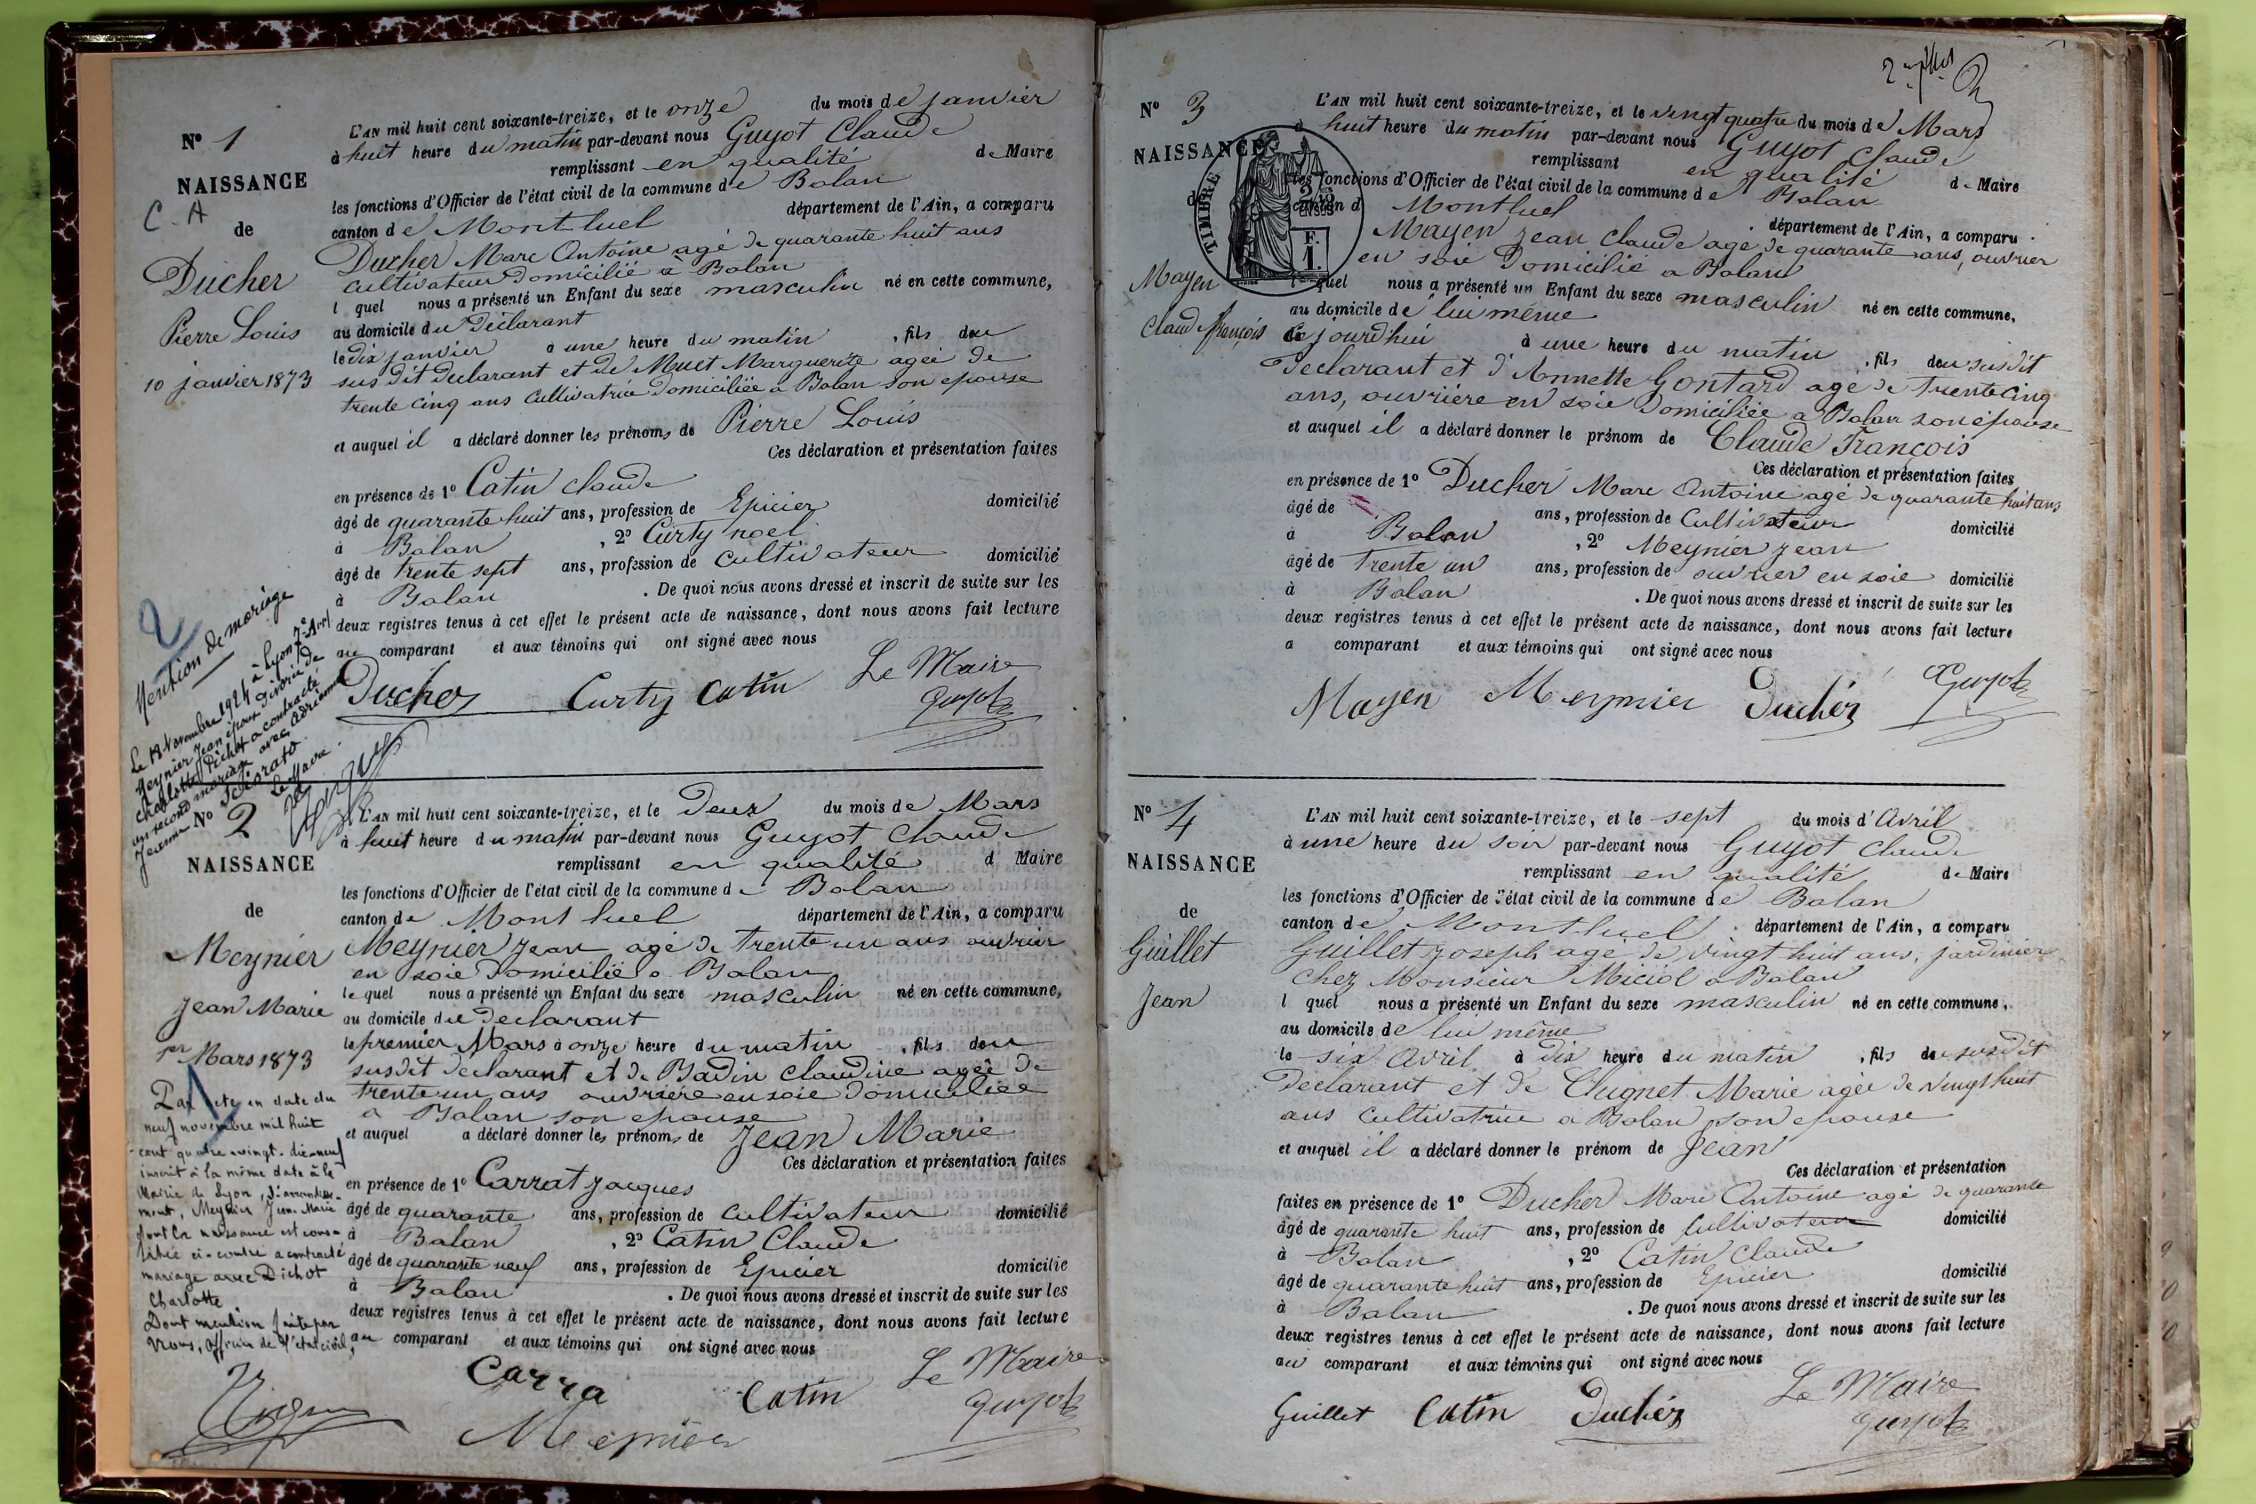 N° 1
NAISSANCE
C. A
de
Ducher
Pierre Louis
10 janvier 1873
L'AN mil huit cent soixante-treize, et le onze du mois de janvier
à huit heure du matin par-devant nous Guyot Claude
remplissant en qualité de Maire
les fonctions d'Officier de l'état civil de la commune de Balan
canton de Montluel département de l'Ain, a comparu
Ducher Marc Antoine agé de quarante huit ans
cultivateur domicilié à Balan
l quel nous a présenté un Enfant du sexe masculin né en cette commune,
au domicile du Déclarant
le dix janvier à une heure du matin , fils du
sus dit declarant et de Muet Marguerite agée de
trente cinq ans cultivatrice domiciliée a Balan son epouse
et auquel il a déclaré donner les prénoms de Pierre Louis
Ces déclaration et présentation faites
en présence de 1° Catin Claude
âgé de quarante huit ans, profession de Epicier domicilié
à Balan , 2° Curty noel
âgé de trente sept ans, profession de cultivateur domicilié
à Balan . De quoi nous avons dressé et inscrit de suite sur les
deux registres tenus à cet effet le présent acte de naissance, dont nous avons fait lecture
au comparant et aux témoins qui ont signé avec nous
Ducher Curty Catin Le Maire
Guyot
2
Mention de mariage
Le 18 Novembre 1924 à Lyon 7e Arrt
Meynier Jean époux divorcé de
Charlotte Dichot a contracté
un second mariage avec Adrienne
Jeanne
Le Maire
N° 2
NAISSANCE
de
Meynier
Jean Marie
1er Mars 1873
Par acte en date du
neuf novembre mil huit
cent quatre-vingt-dix-neuf
inscrit à la même date à la
Mairie de Lyon, arrondisse-
ment, Meynier Jean-Marie
dont la naissance est cons-
tatée ci-contre a contracté
mariage avec Dichot
Charlotte.
Dont mention faite par
Nous, officier de l'état civil,
L'AN mil huit cent soixante-treize, et le deux du mois de Mars
à huit heure du matin par-devant nous Guyot Claude
remplissant en qualité d Maire
les fonctions d'Officier de l'état civil de la commune de Balan
canton de Mont luel département de l'Ain, a comparu
Meynier Jean agé de trente un ans ouvrier
en soie domicilié a Balan
le quel nous a présenté un Enfant du sexe masculin né en cette commune,
au domicile du declarant
le premier Mars à onze heure du matin , fils du
susdit declarant et de Badin Claudine agée de
trente un ans ouvrière en soie domiciliée
a Balan son epouse
et auquel a déclaré donner les prénoms de Jean Marie
Ces déclaration et présentation faites
en présence de 1° Carrat Jacques
âgé de quarante ans, profession de cultivateur domicilié
à Balan , 2° Catin Claude
âgé de quarante neuf ans, profession de Epicier domicilié
à Balan . De quoi nous avons dressé et inscrit de suite sur les
deux registres tenus à cet effet le présent acte de naissance, dont nous avons fait lecture
au comparant et aux témoins qui ont signé avec nous
Carra Catin Le Maire
Meynier Guyot
N° 3
NAISSANCE
d
Mayen
Claude françois
TIMBRE
F.
1.
L'AN mil huit cent soixante-treize, et le vingt quatre du mois de Mars
à huit heure du matin par-devant nous Guyot Claude
remplissant en qualité de Maire
les fonctions d'Officier de l'état civil de la commune de Balan
canton d Montluel département de l'Ain, a comparu
Mayen Jean Claude agé de quarante ans, ouvrier
en soie domicilié a Balan
quel nous a présenté un Enfant du sexe masculin né en cette commune,
au domicile de lui même
ce jourd'hui à une heure du matin , fils du susdit
declarant et d'Annette Gontard agé de trente cinq
ans, ouvrière en soie domiciliée a Balan son épouse
et auquel il a déclaré donner le prénom de Claude François
Ces déclaration et présentation faites
en présence de 1° Ducher Marc Antoine agé de quarante huit ans
âgé de ans, profession de Cultivateur domicilié
à Balan , 2° Meynier Jean
âgé de trente un ans, profession de ouvrier en soie domicilié
à Balan . De quoi nous avons dressé et inscrit de suite sur les
deux registres tenus à cet effet le présent acte de naissance, dont nous avons fait lecture
a comparant et aux témoins qui ont signé avec nous
Mayen Meynier Ducher Guyot
N° 4
NAISSANCE
de
Guillet
Jean
L'AN mil huit cent soixante-treize, et le sept du mois d'Avril
à une heure du soir par-devant nous Guyot Claude
remplissant en qualité de Maire
les fonctions d'Officier de l'état civil de la commune de Balan
canton de Montluel département de l'Ain, a comparu
Guillet Joseph agé de vingt huit ans, jardinier
chez Monsieur Miciol a Balan
l quel nous a présenté un Enfant du sexe masculin né en cette commune,
au domicile de lui même
le six Avril à dix heure du matin , fils du susdit
declarant et de Clugnet Marie agée de vingt huit
ans cultivatrice a Balan son epouse
et auquel il a déclaré donner le prénom de Jean
Ces déclaration et présentation
faites en présence de 1° Ducher Marc Antoine agé de quarante
âgé de quarante huit ans, profession de Cultivateur domicilié
à Balan , 2° Catin Claude
âgé de quarante huit ans, profession de Epicier domicilié
à Balan . De quoi nous avons dressé et inscrit de suite sur les
deux registres tenus à cet effet le présent acte de naissance, dont nous avons fait lecture
au comparant et aux témoins qui ont signé avec nous
Guillet Catin Ducher Le Maire
Guyot